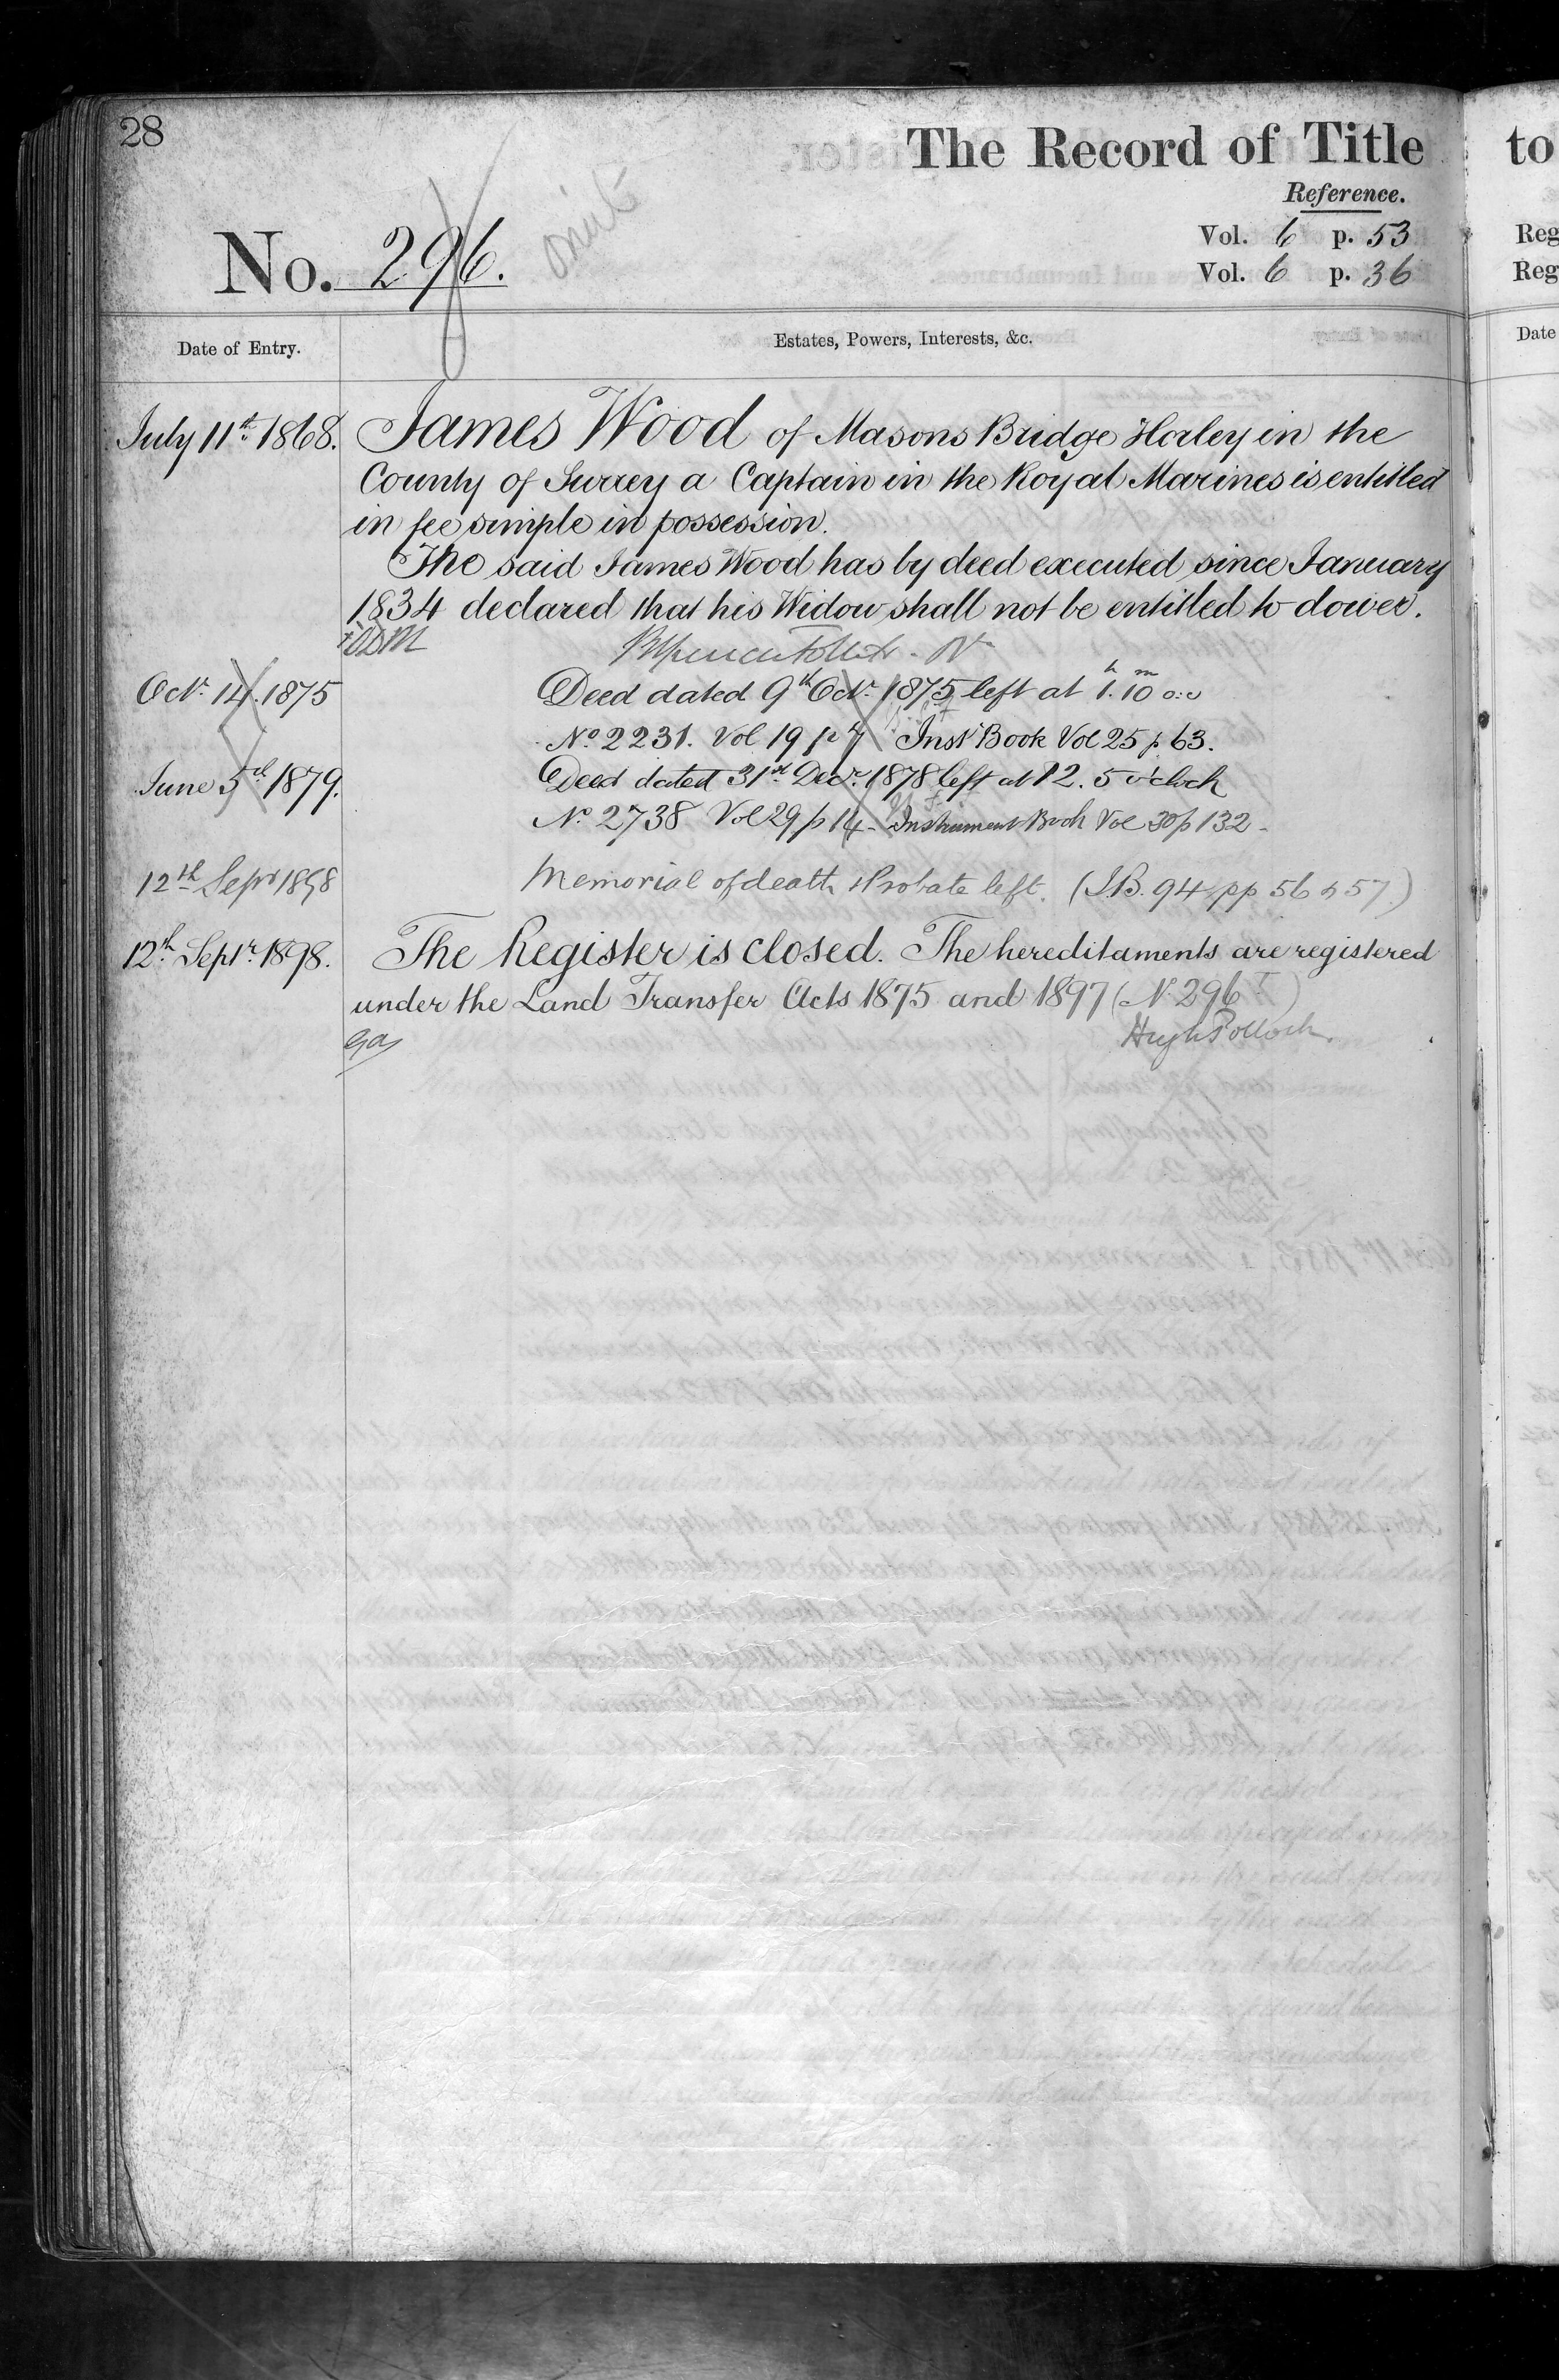 28
The Record of Title
Reference.
Vol. 6 p. 53
Vol. 6 p. 36
No. 296.
omit
Date of Entry.
Estates, Powers, Interests, &c.
July 11th 1868.
James Wood of Masons Bridge Horley in the
County of Surrey a Captain in the Royal Marines is entitled
in fee simple in possession.
The said James Wood has by deed executed since January
1834 declared that his Widow shall not be entitled to dower.
Octr. 14. 1875
Deed dated 9th Octr. 1875 left at 1h. 10m o:c
No. 2231. Vol 19 p 7 Inst Book Vol 25 p 63.
June 5th 1879.
Deed dated 31st Decr. 1878 left at 12. 5 o'clock
No. 2738 Vol 29 p 14 - Instrument Book Vol 30 p 132 -
12th Sepr 1898
Memorial of death & Probate left. (I.B. 94 pp 56 & 57.)
12th Septr. 1898.
The Register is closed. The hereditaments are registered
under the Land Transfer Acts 1875 and 1897 (No. 296 )
Hugh Pollock.
to
Reg
Reg
Date